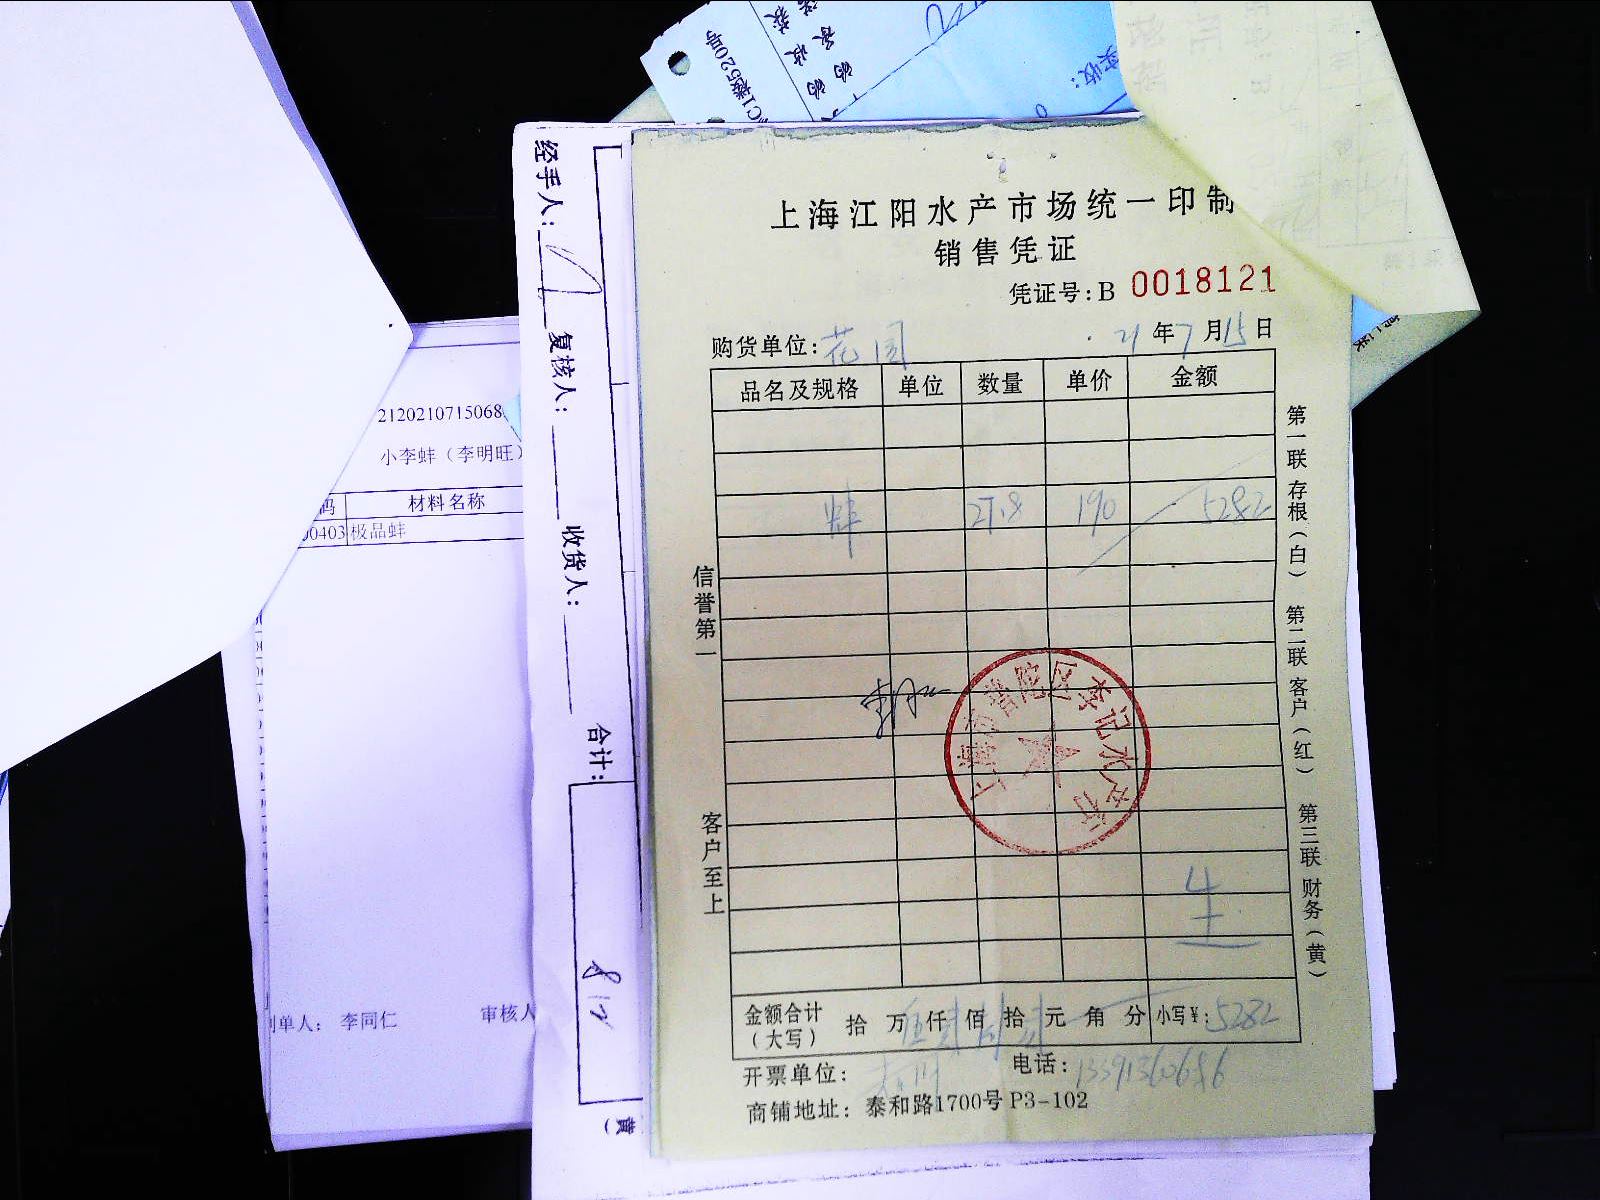 上海江阳水产市场统一印制
销售凭证
凭证号:B 0018121
购货单位:花园 21年7月15日
品名及规格 单位 数量 单价 金额
蚌 27.8 190 5282
信誉第一
客户至上
第一联存根(白) 第二联客户(红) 第三联财务(黄)
上海市普陀区李记水产行
金额合计(大写) 拾 万 伍 仟 贰 佰 捌 拾 贰 元 角 分 小写¥:5282
开票单位: 电话:13391360686
商铺地址: 泰和路1700号 P3-102
经手人:
复核人:
收货人:
合计:
黄)
2120210715068
小李蚌(李明旺)
码 材料名称
00403 极品蚌
制单人: 李同仁 审核人
C1楼520号
实收: